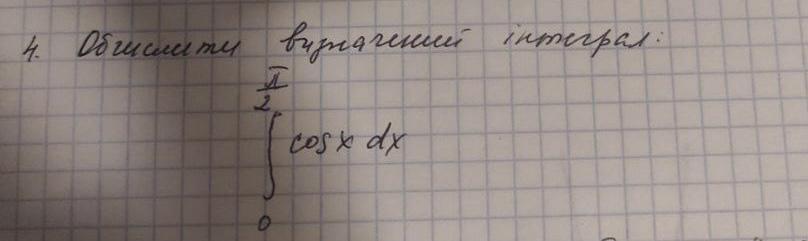 4. Обчислити визначений інтеграл:
π/2
∫ cosx dx
0